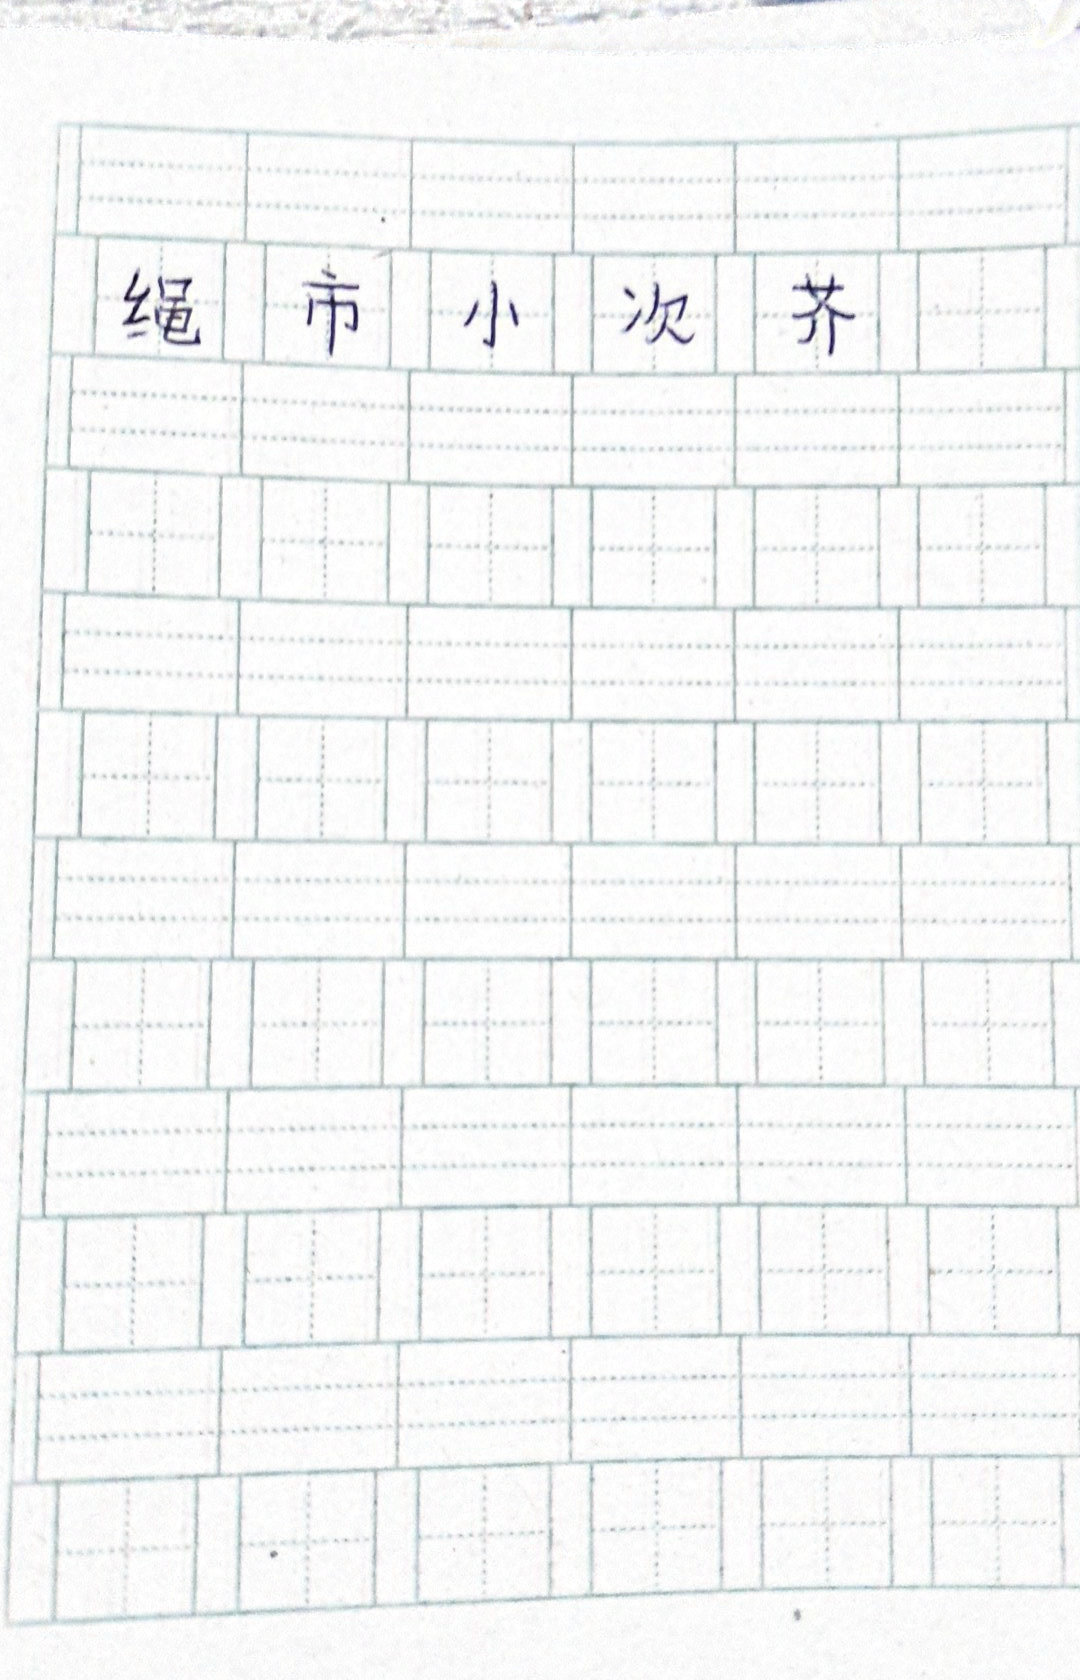 绳市小次芥